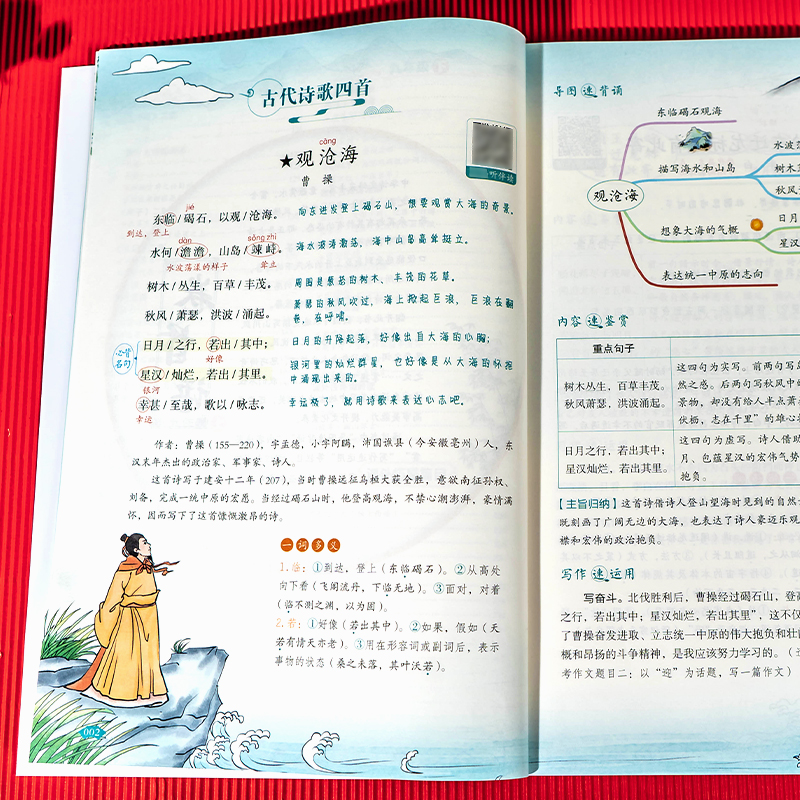 古代诗歌四首
cāng
★观沧海
曹 操
听伴读
jié
东临/碣石，以观/沧海。 向东进发登上碣石山，想要观赏大海的奇景。
到达，登上
dàn sǒng zhì
水何/澹澹，山岛/竦峙。 海水波涛激荡，海中山岛高耸挺立。
水波荡漾的样子 耸立
树木/丛生，百草/丰茂。 周围是葱葱的树木、丰茂的花草。
秋风/萧瑟，洪波/涌起。 萧瑟的秋风吹过，海上掀起巨浪，巨浪在翻
卷，在呼啸。
必背名句
日月/之行，若出/其中； 日月的升降起落，好像出自大海的心胸；
好像
星汉/灿烂，若出/其里。 银河里的灿烂群星，也好像是从大海的怀抱
中涌现出来的。
银河
幸甚/至哉，歌以/咏志。 幸运极了，就用诗歌来表达心志吧。
幸运
作者：曹操（155—220），字孟德，小字阿瞒，沛国谯县（今安徽亳州）人，东
汉末年杰出的政治家、军事家、诗人。
这首诗写于建安十二年（207），当时曹操远征乌桓大获全胜，意欲南征孙权、
刘备，完成一统中原的宏愿。当经过碣石山时，他登高观海，不禁心潮澎湃，豪情满
怀，因而写下了这首慷慨激昂的诗。
一词多义
1.临：①到达，登上（东临碣石）。②从高处
向下看（飞阁流丹，下临无地）。③面对，对着
（临不测之渊，以为固）。
2.若：①好像（若出其中）。②如果，假如（天
若有情天亦老）。③用在形容词或副词后，表示
事物的状态（桑之未落，其叶沃若）。
002
导图速背诵
观沧海
东临碣石观海
描写海水和山岛
水波荡
树木
秋风
想象大海的气概
日月
星汉
表达统一中原的志向
内容速鉴赏
重点句子
树木丛生，百草丰茂。
秋风萧瑟，洪波涌起。
这四句为实写。前两句写岛
然之感。后两句写秋风中
景物，却没有给人半点萧
伏枥，志在千里”的雄心
日月之行，若出其中；
星汉灿烂，若出其里。
这四句为虚写。诗人借助
月、包蕴星汉的宏伟气势
抱负。
【主旨归纳】这首诗借诗人登山望海时见到的自然
既刻画了广阔无边的大海，也表达了诗人豪迈乐观
襟和宏伟的政治抱负。
写作速运用
写奋斗。北伐胜利后，曹操经过碣石山，登高
之行，若出其中；星汉灿烂，若出其里”，这不仅
了曹操奋发进取、立志统一中原的伟大抱负和壮
概和昂扬的斗争精神，是我应该努力学习的。（
考作文题目二：以“迎”为话题，写一篇作文）